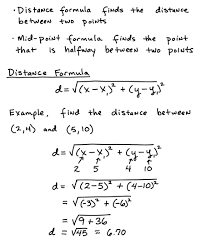 • Distance formula finds the distance
between two points
• Mid-point formula finds the point
that is halfway between two points
Distance Formula
d = √(x - x₁)² + (y - y₁)²
Example, find the distance between
(2,4) and (5,10)
d = √(x - x₁)² + (y - y₁)²
2 5 4 10
d = √(2-5)² + (4-10)²
= √(-3)² + (-6)²
= √9 + 36
d = √45 = 6.70